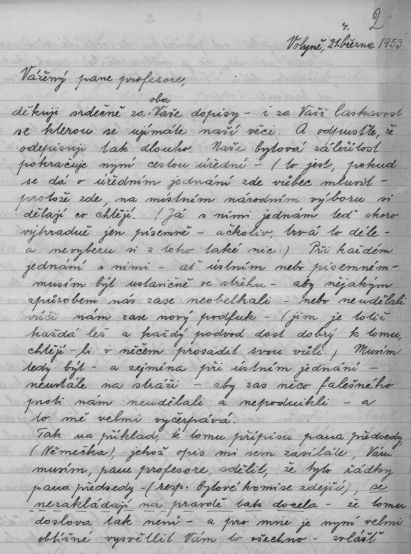 4. 2
Volyně, 21. března 1953
Vážený pane profesore,
děkuji srdečně za oba Vaše dopisy – i za Vaši laskavost
se kterou se ujímáte naší věci. A odpusťte, že
odepisuji tak dlouho. Naše bytová záležitost
pokračuje nyní cestou úřední – (to jest, pokud
se dá o úředním jednání zde vůbec mluvit –
protože zde, na místním národním výboru si
dělají co chtějí. (Já s nimi jednám teď skoro
výhradně jen písemně – ačkoliv, trvá to déle –
a nevyberu si z toho také nic.) Při každém
jednání s nimi – ať ústním nebo písemném –
musím být ustavičně ve střehu – aby nějakým
způsobem nás zase neobelhali – nebo neudělali
vůči nám zase nový podfuk – (jim je totiž
každá leš a každý podvod dost dobrý k tomu,
chtějí-li v něčem prosadit svou vůli.) Musím
tedy být – a zejména při ústním jednání –
neustále na stráži – aby zas něco falešného
proti nám neudělali a nepodnikli – a
to mě velmi vyčerpává.
Tak na příklad, k tomu přípisu pana předsedy
(Němečka), jehož opis mi sem zasíláte, Vám
musím, pane profesore, sdělit, že byto řádky
pana předsedy – (resp. bytové komise zdejší), se
nezakládají na pravdě tak docela – že tomu
doslova tak není – a pro mne je nyní velmi
obtížné vysvětlit Vám to všechno – zvlášť